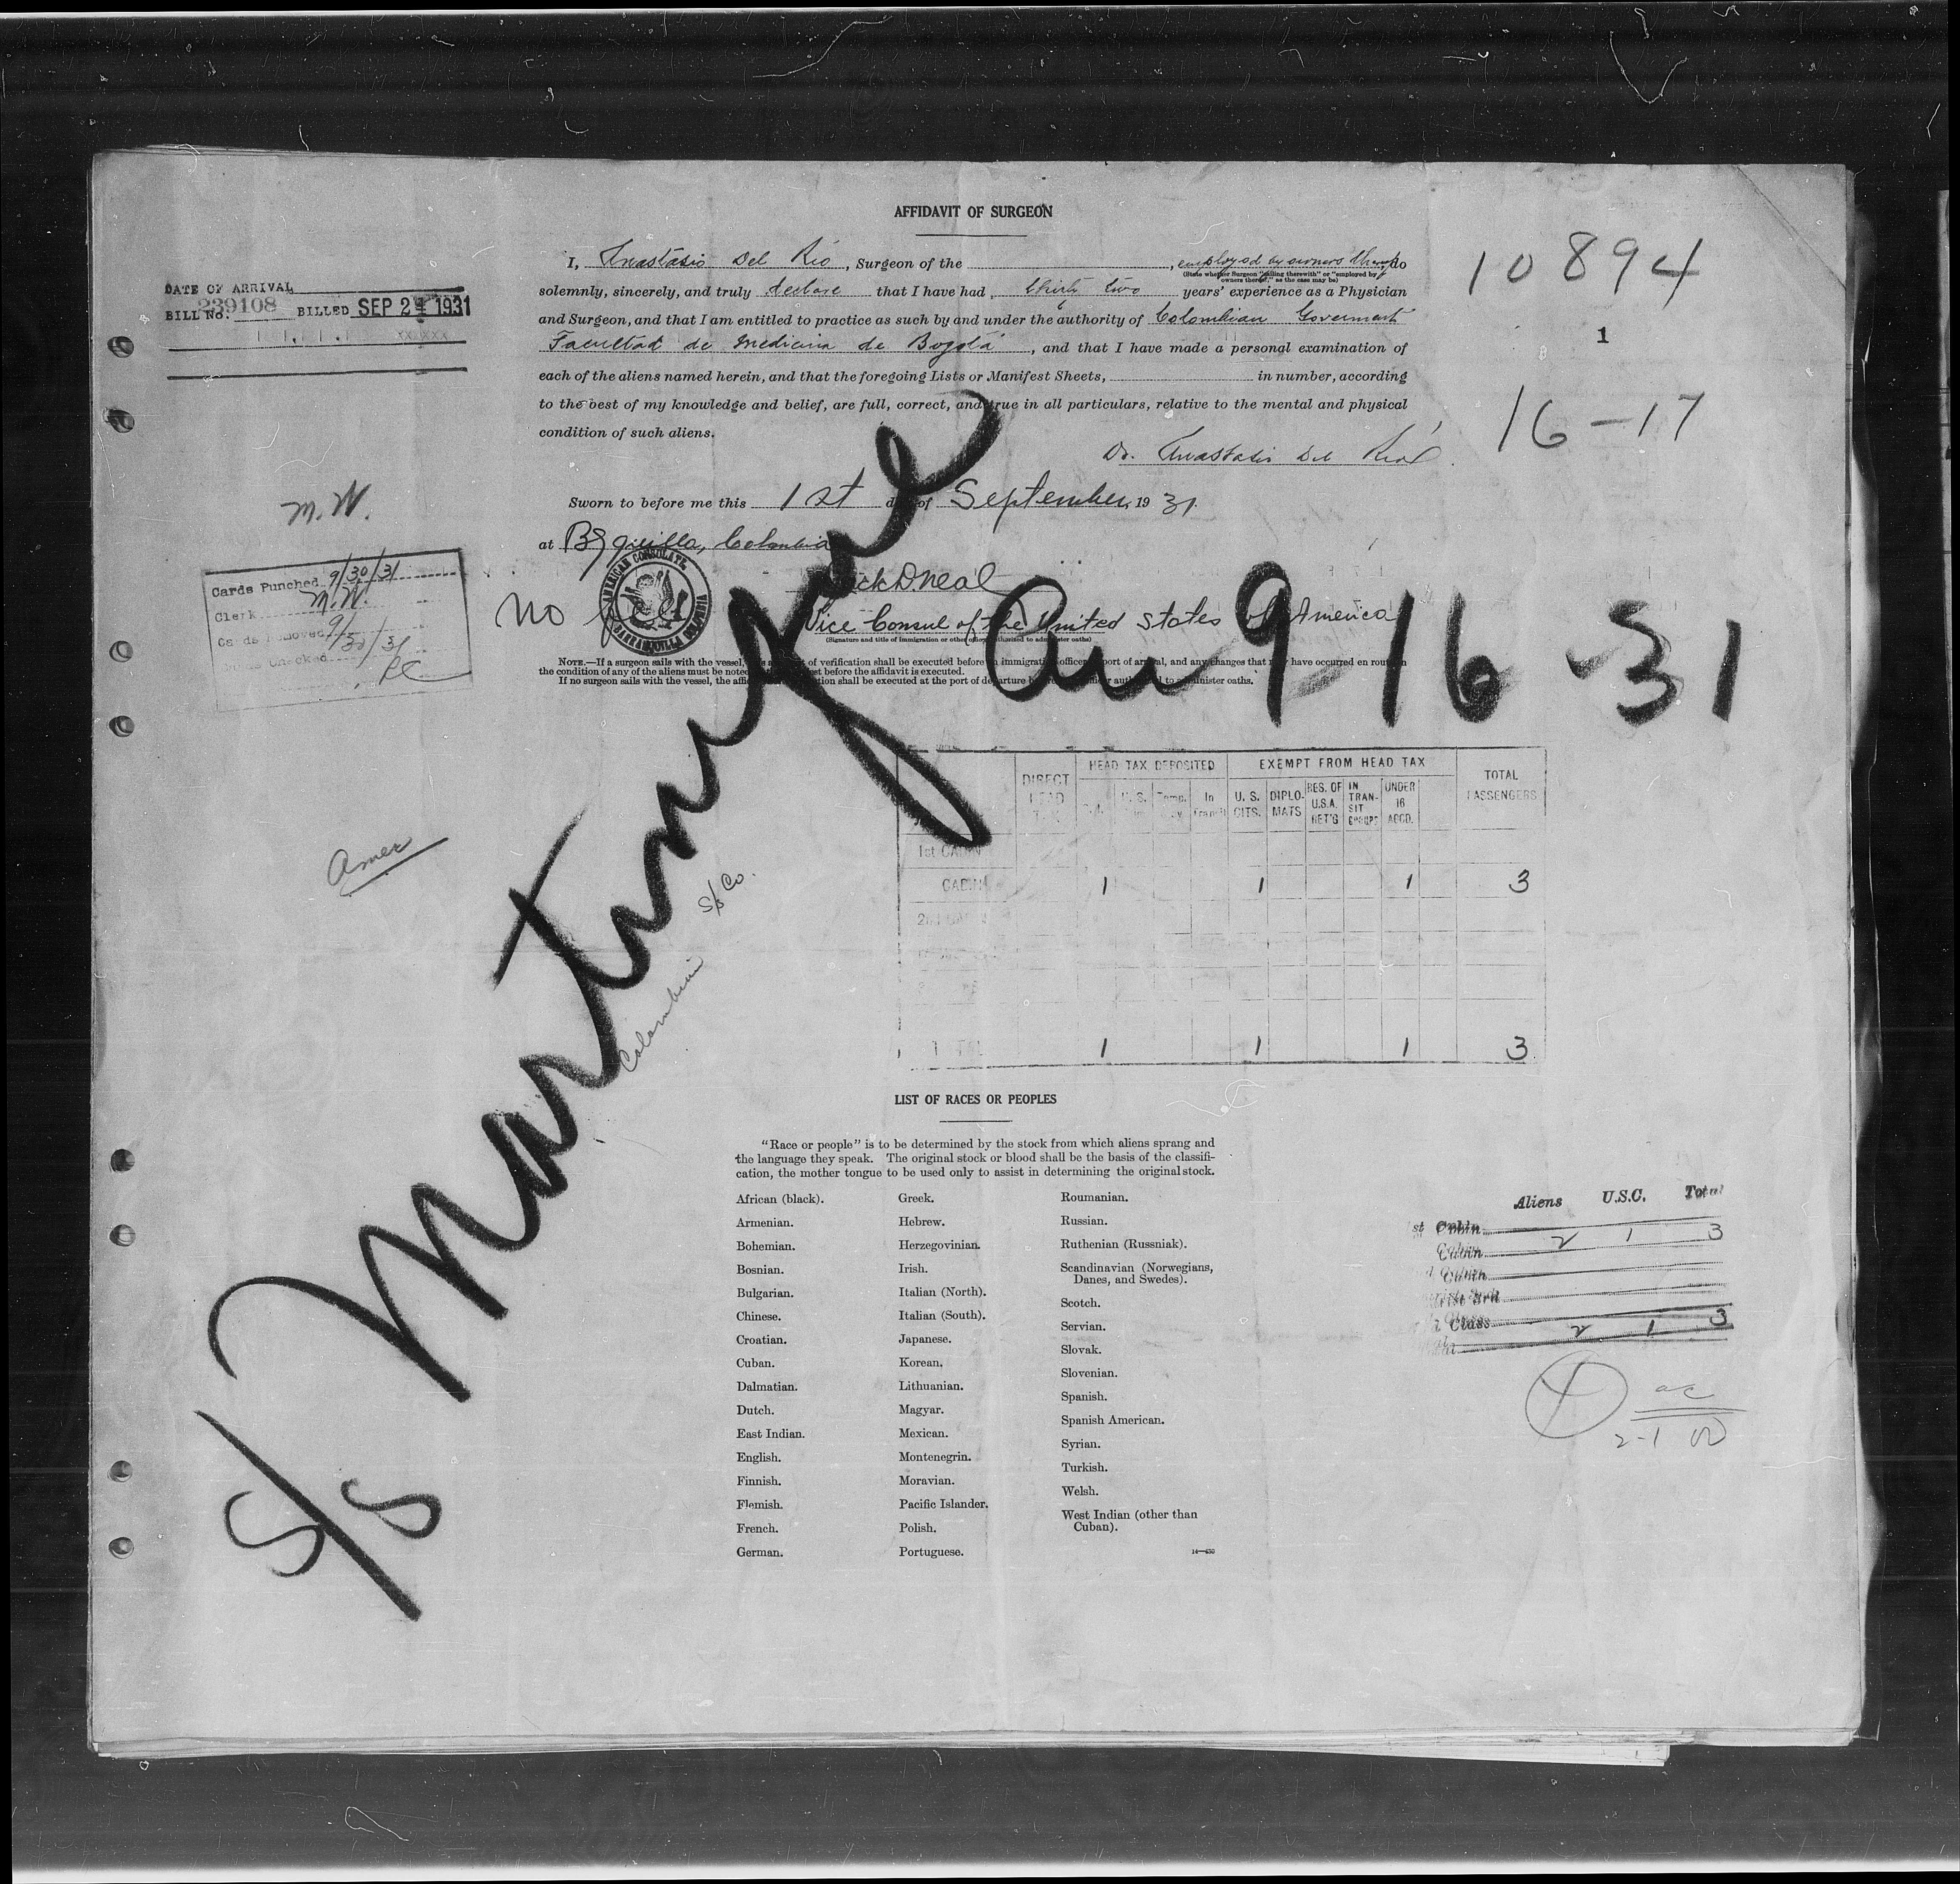 AFFIDAVIT OF SURGEON
I, Anastasio Del Rio, Surgeon of the , employed by owners thereof, do
(State whether Surgeon "sailing therewith" or "employed by
owners thereof," as the case may be)
solemnly, sincerely, and truly declare that I have had thirty two years' experience as a Physician
and Surgeon, and that I am entitled to practice as such by and under the authority of Colombian Goverment
Facultad de Medicina de Bogotá, and that I have made a personal examination of
each of the aliens named herein, and that the foregoing Lists or Manifest Sheets, in number, according
to the best of my knowledge and belief, are full, correct, and true in all particulars, relative to the mental and physical
condition of such aliens.
Dr. Anastasio Del Rio
Sworn to before me this 1st day of September, 19 31.
at B/quilla, Colombia
AMERICAN CONSULATE
BARRANQUILLA COLOMBIA
No
Vice Consul of the United States of America
(Signature and title of immigration or other officer authorized to administer oaths)
NOTE.—If a surgeon sails with the vessel, of verification shall be executed before immigration officer port of arrival, and any changes that may have occurred en route in
the condition of any of the aliens must be noted before the affidavit is executed.
If no surgeon sails with the vessel, the shall be executed at the port of departure to administer oaths.
DATE OF ARRIVAL
BILL NO. 239108 BILLED SEP 24 1931
10894
1
16-17
M.W.
Cards Punched 9/30/31
Clerk M.W.
Cards Removed 9/30/31
Cards Checked
S/S Martinque
Arr 9-16-31
Amer
Colombian S/S Co.
DIRECT HEAD TAX
HEAD TAX DEPOSITED
EXEMPT FROM HEAD TAX
TOTAL PASSENGERS
In Transit
U. S. CITS.
DIPLOMATS
RES. OF U.S.A. RET'G
IN TRANSIT GROUPS
UNDER 16 ACCD.
1st CABIN
CABIN 1 1 1 3
TOTAL 1 1 1 3
LIST OF RACES OR PEOPLES
"Race or people" is to be determined by the stock from which aliens sprang and
the language they speak. The original stock or blood shall be the basis of the classifi-
cation, the mother tongue to be used only to assist in determining the original stock.
African (black).
Armenian.
Bohemian.
Bosnian.
Bulgarian.
Chinese.
Croatian.
Cuban.
Dalmatian.
Dutch.
East Indian.
English.
Finnish.
Flemish.
French.
German.
Greek.
Hebrew.
Herzegovinian.
Irish.
Italian (North).
Italian (South).
Japanese.
Korean.
Lithuanian.
Magyar.
Mexican.
Montenegrin.
Moravian.
Pacific Islander.
Polish.
Portuguese.
Roumanian.
Russian.
Ruthenian (Russniak).
Scandinavian (Norwegians,
Danes, and Swedes).
Scotch.
Servian.
Slovak.
Slovenian.
Spanish.
Spanish American.
Syrian.
Turkish.
Welsh.
West Indian (other than
Cuban).
Aliens U.S.C. Total
Cabin 2 1 3
Class 2 1 3
2-1